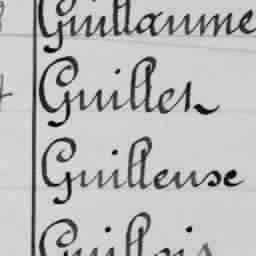 Guillaume
Guillet
Guilleuse
Guillois